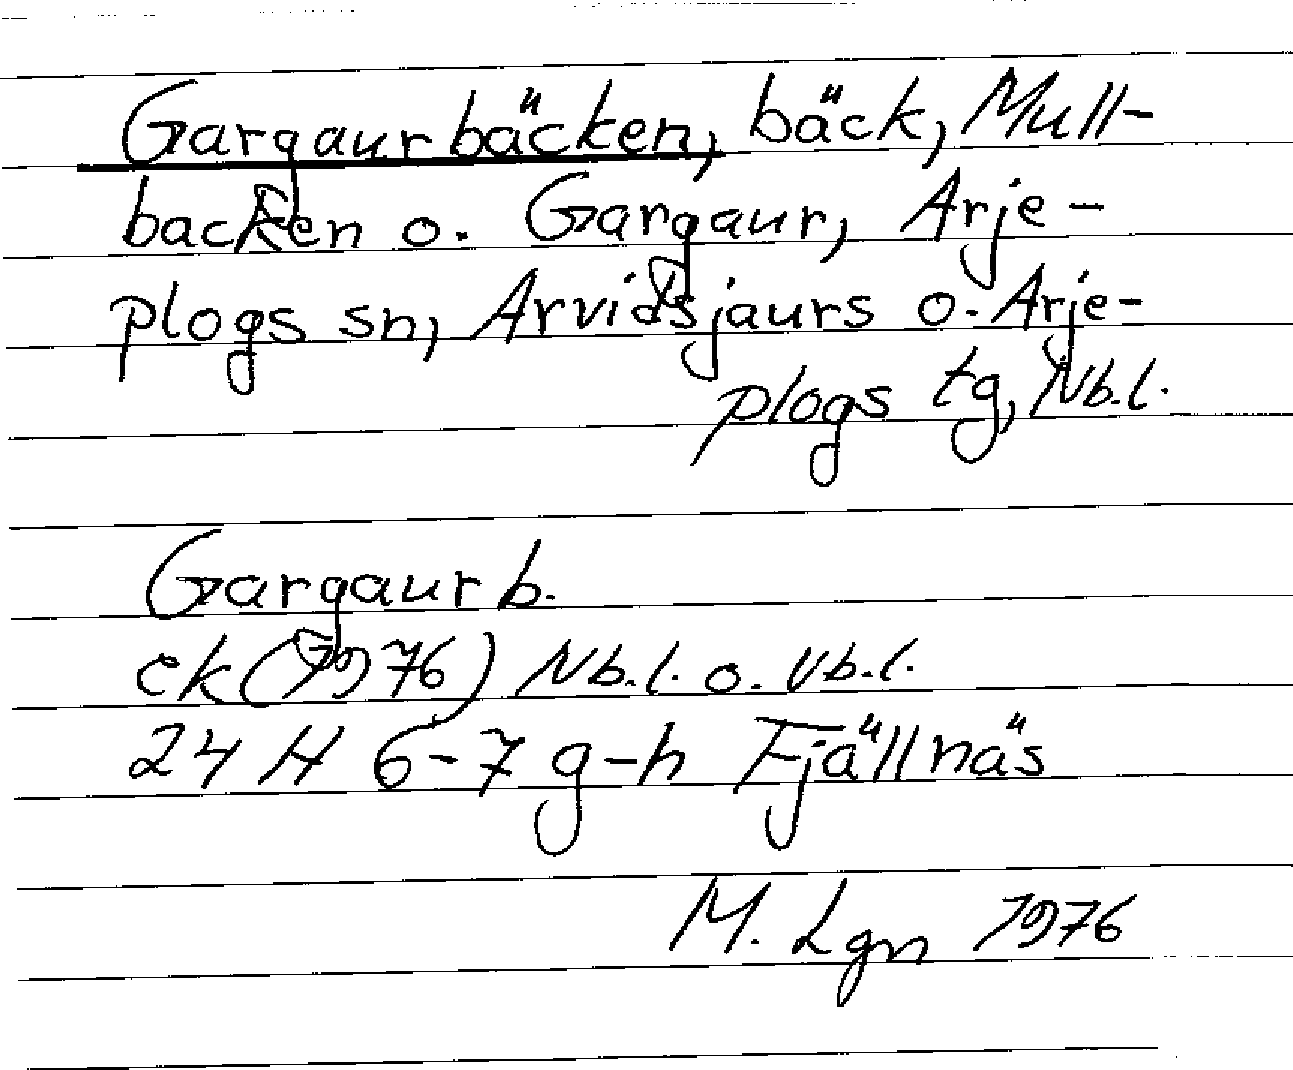 Gargaurbäcken, bäck, Mull-
backen o. Gargaur, Arje-
plogs sn, Arvidsjaurs o. Arje-
plogs tg, Nb.l.
Gargaurb.
ek (1976) Nb.l. o. Vb.l.
24 H 6-7 g-h Fjällnäs
M. Lgn 1976